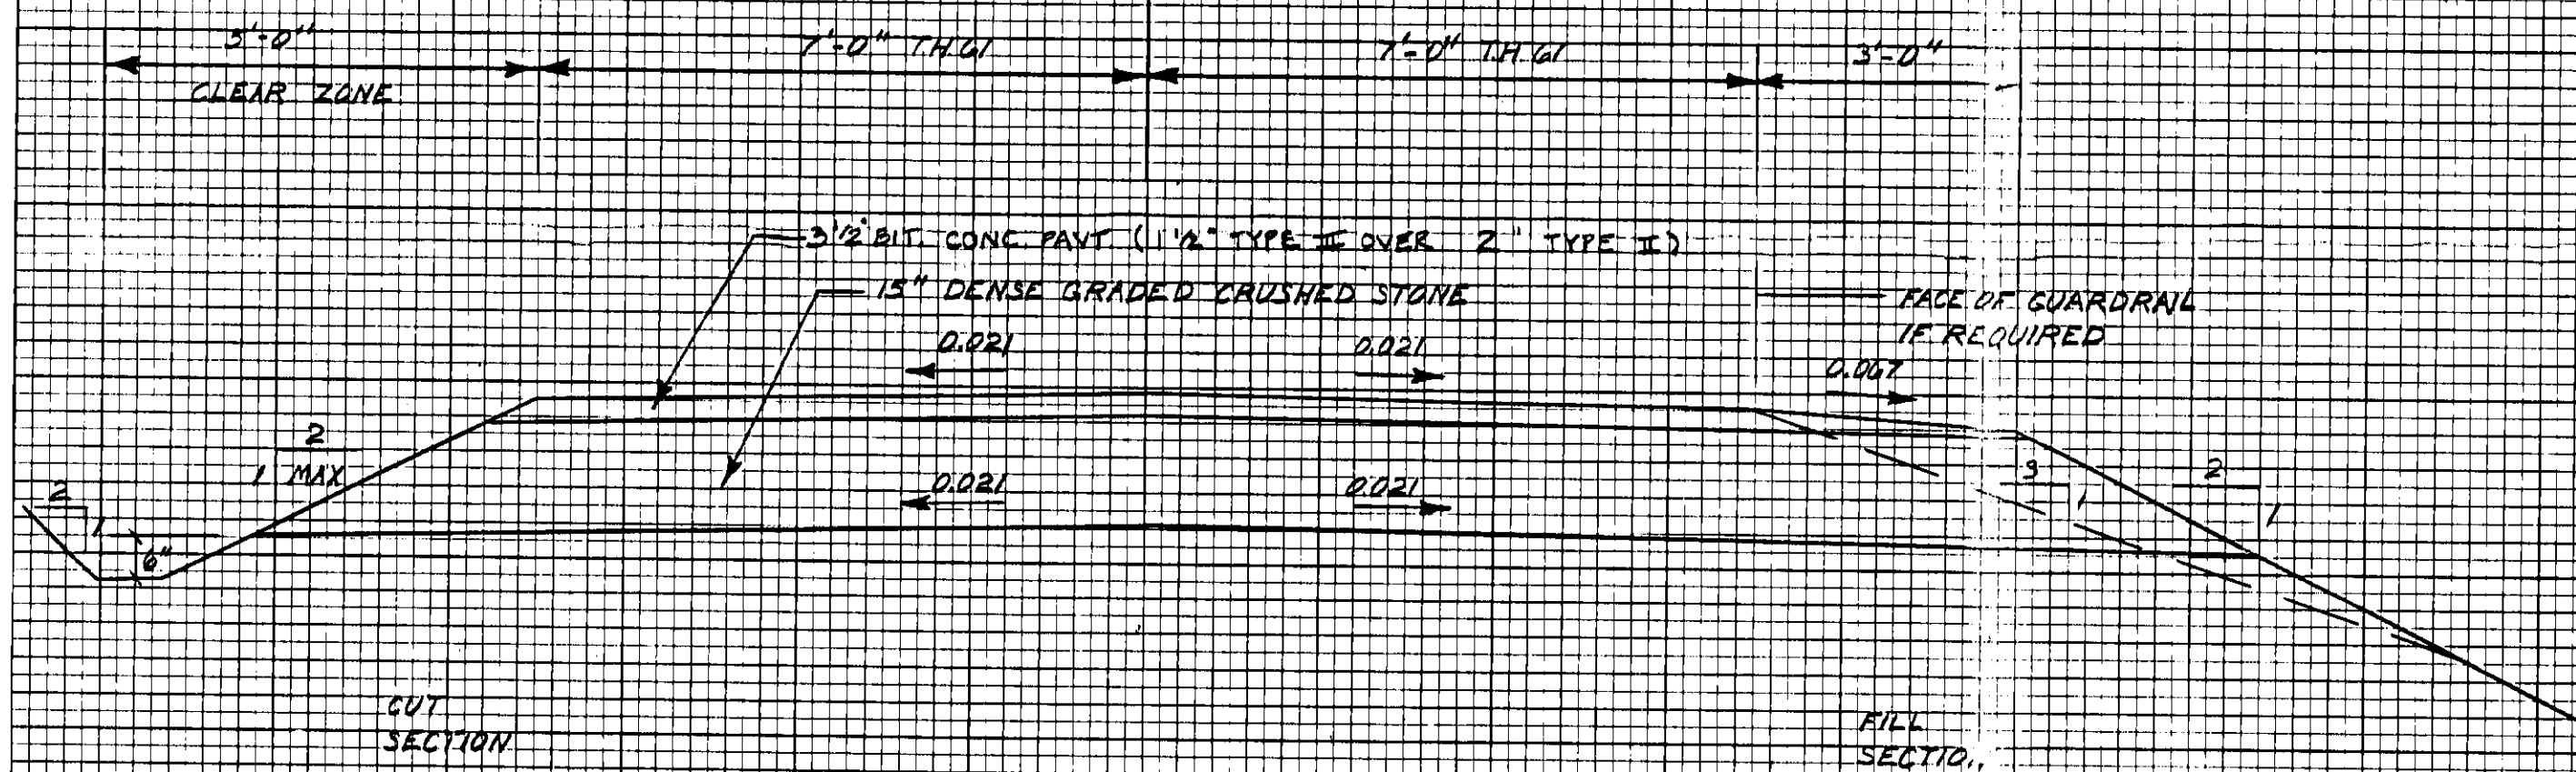 5'-0"
7'-0" T.H.61
7'-0" T.H 61
3'-0"
CLEAR ZONE
3 1/2" BIT. CONC. PAVT. (1 1/2" TYPE III OVER 2" TYPE II)
15" DENSE GRADED CRUSHED STONE
FACE OF GUARDRAIL
IF REQUIRED
0.021
0.021
0.067
2
1 MAX
2
1
6"
0.021
0.021
3
1
2
1
CUT
SECTION
FILL
SECTIO